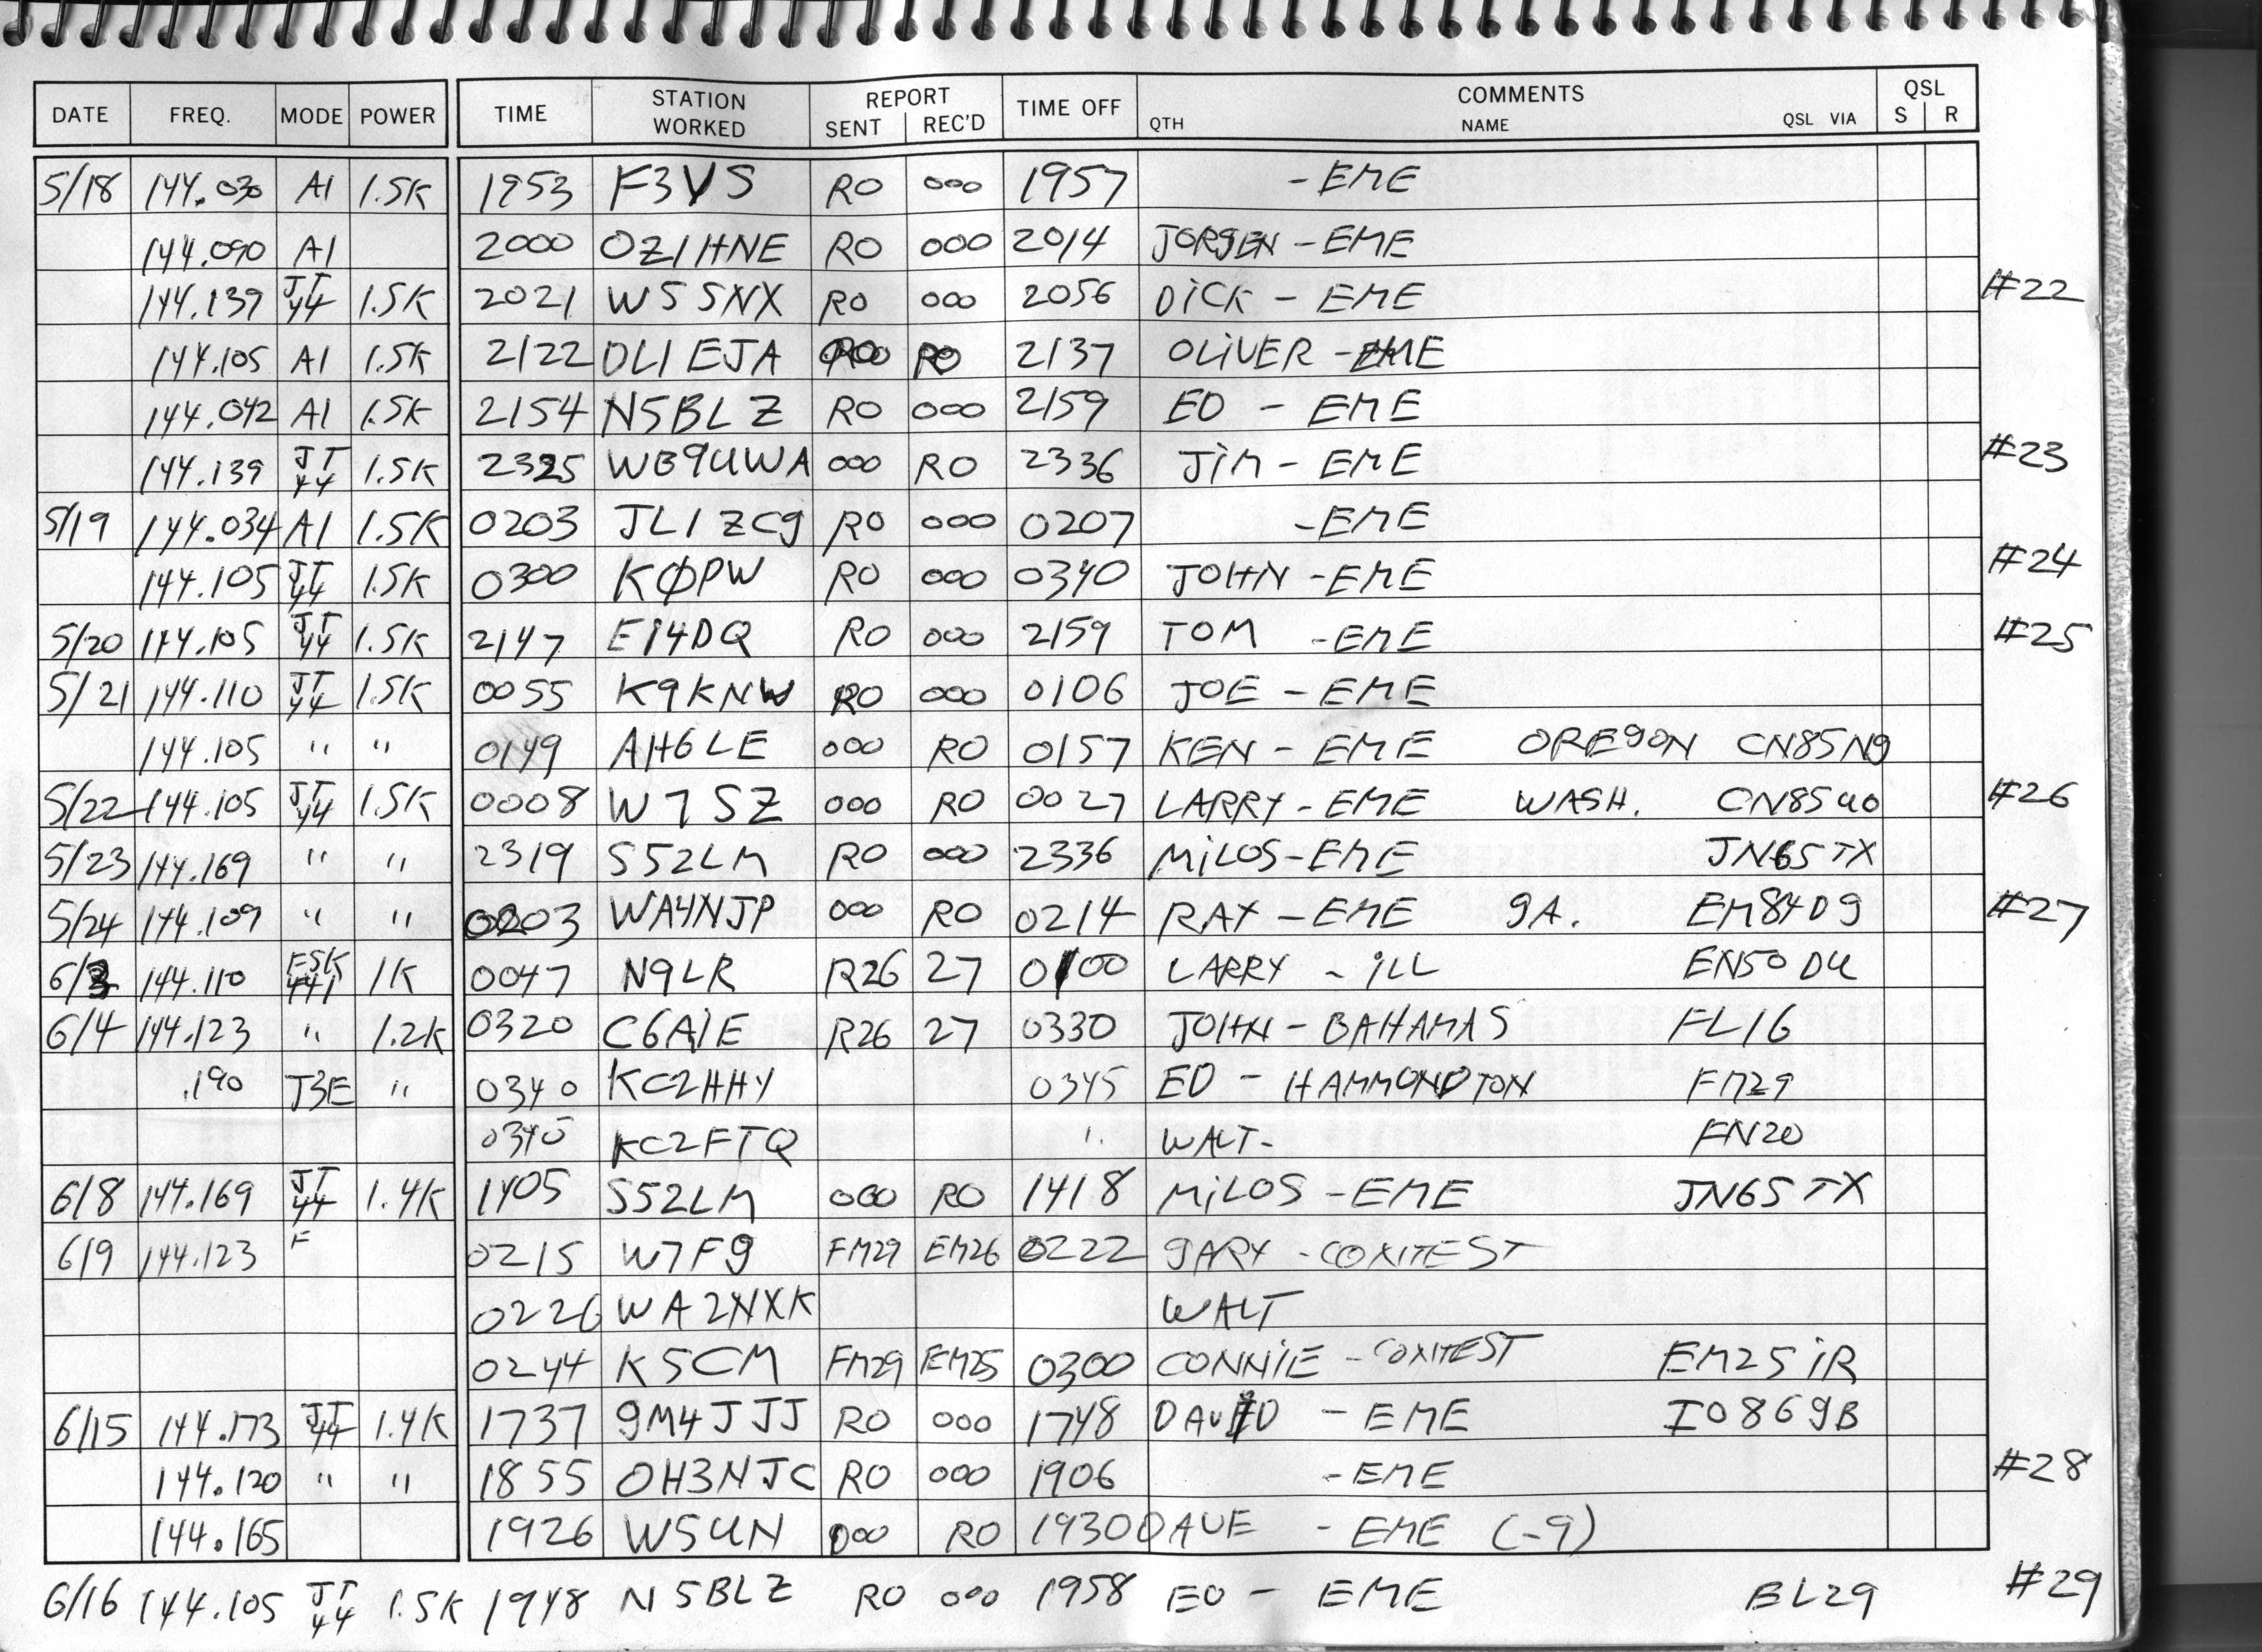 DATE FREQ. MODE POWER TIME STATION WORKED REPORT SENT REC'D TIME OFF COMMENTS QTH NAME QSL VIA QSL S R
5/18 144.030 A1 1.5K 1953 F3VS RO 000 1957 -EME
144.090 A1 2000 OZ1HNE RO 000 2014 JORGEN - EME
144.139 JT44 1.5K 2021 W5SNX RO 000 2056 DiCK - EME #22
144.105 A1 1.5K 2122 DL1EJA RO 2137 OLiVER - EME
144.042 A1 1.5K 2154 N5BLZ RO 000 2159 ED - EME
144.139 JT44 1.5K 2325 WB9UWA 000 RO 2336 JiM - EME #23
5/19 144.034 A1 1.5K 0203 JL1ZCG RO 000 0207 -EME
144.105 JT44 1.5K 0300 KØPW RO 000 0340 JOHN - EME #24
5/20 144.105 JT44 1.5K 2147 EI4DQ RO 000 2159 TOM - EME #25
5/21 144.110 JT44 1.5K 0055 K9KNW RO 000 0106 JOE - EME
144.105 " " 0149 AH6LE 000 RO 0157 KEN - EME OREGON CN85NG
5/22 144.105 JT44 1.5K 0008 W7SZ 000 RO 0027 LARRY - EME WASH. CN85UO #26
5/23 144.169 " " 2319 S52LM RO 000 2336 MiLOS - EME JN65TX
5/24 144.109 " " 0203 WA4NJP 000 RO 0214 RAY - EME GA. EM84DG #27
6/3 144.110 FSK441 1K 0047 N9LR R26 27 0100 LARRY - iLL EN50DU
6/4 144.123 " 1.2K 0320 C6AIE R26 27 0330 JOHN - BAHAMAS FL16
.190 J3E " 0340 KC2HHY 0345 ED - HAMMONDTON FM29
0340 KC2FTQ " WALT- FN20
6/8 144.169 JT44 1.4K 1405 S52LM 000 RO 1418 MiLOS - EME JN65TX
6/9 144.123 F 0215 W7FG FM29 EM26 0222 GARY - CONTEST
0226 WA2NXK WALT
0244 K5CM FM29 EM25 0300 CONNiE - CONTEST EM25iR
6/15 144.173 JT44 1.4K 1737 GM4JJJ RO 000 1748 DAViD - EME IO86GB
144.120 " " 1855 OH3NJC RO 000 1906 -EME #28
144.165 1926 W5UN 000 RO 1930 DAVE - EME (-9)
6/16 144.105 JT44 1.5K 1948 N5BLZ RO 000 1958 ED - EME BL29 #29